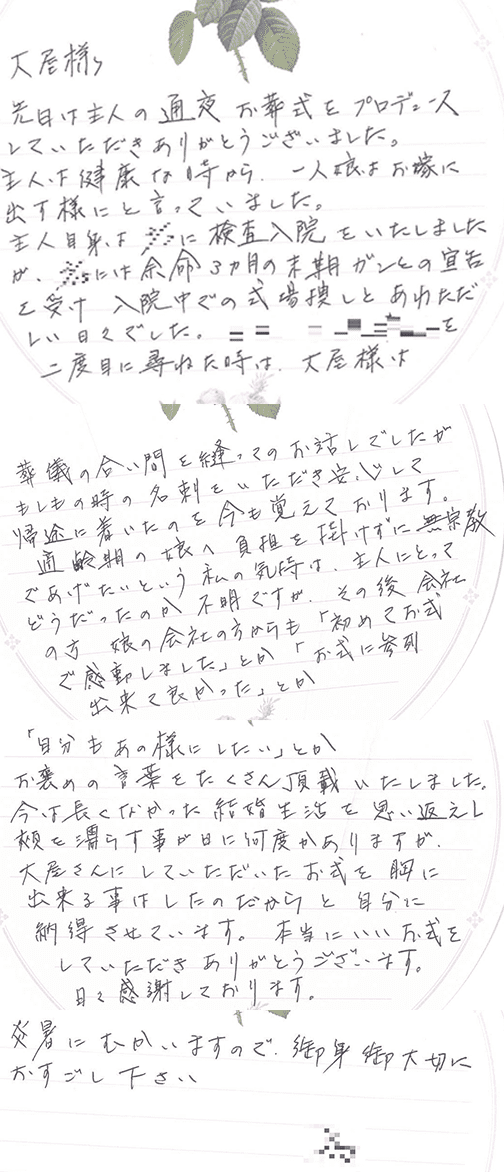 大屋様
先日は主人の通夜 お葬式をプロデュース
していただきありがとうございました。
主人は健康な時から、一人娘はお嫁に
出す様にと言っていました。
主人自身は に検査入院をいたしました
が、 には余命3ヵ月の末期ガンとの宣告
を受け 入院中での式場捜しとあわただ
しい日々でした。 を
二度目に尋ねた時は、大屋様は
葬儀の合い間を縫ってのお話しでしたが
もしもの時の名刺をいただき安心して
帰途に着いたのを今も覚えております。
適齢期の娘へ負担を掛けずに無宗教
であげたいという私の気持は、主人にとって
どうだったのか不明ですが、その後会社
の方 娘の会社の方からも「初めてお式
で感動しました」とか「お式に参列
出来て良かった」とか
「自分もあの様にしたい」とか
お褒めの言葉をたくさん頂戴いたしました。
今は長くなかった結婚生活を思い返えし
頬を濡らす事が日に何度かありますが、
大屋さんにしていただいたお式を胸に
出来る事はしたのだからと自分に
納得させています。本当にいいお式を
していただきありがとうございます。
日々感謝しております。
炎暑にむかいますので、御身御大切に
おすごし下さい